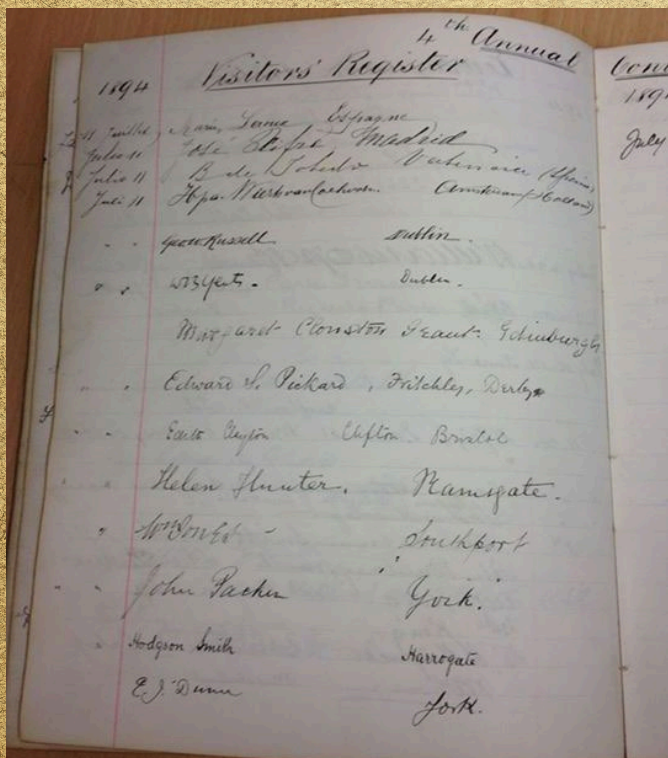 4th Annual
1894 Visitors' Register
11 Juillet Espagne
Julio 11 José Madrid
Julio 11 B de Toledo
Juli 11 Amsterdam (Holland)
" " Geo W Russell Dublin
" " W B Yeats. Dublin.
Margaret Clouston Grant. Edinburgh
" " Edward S. Pickard, Fritchley, Derby
" " Clayton Clifton Bristol
" " Helen Hunter. Ramsgate.
" Wm Jones - Southport
" " John Packer York.
Hodgson Smith Harrogate
E. J. Dunn York.
1894
July